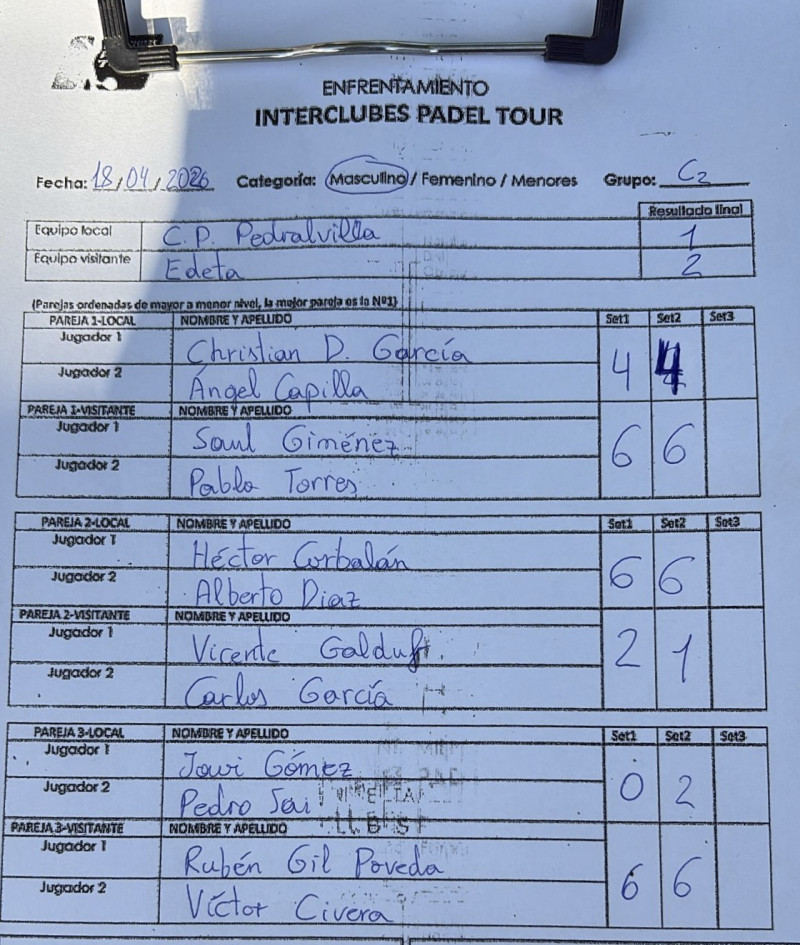 ENFRENTAMIENTO
INTERCLUBES PADEL TOUR
Fecha: 18/04/2026 Categoría: Masculino / Femenino / Menores Grupo: C2
Resultado final
Equipo local C.P. Pedralvilla 1
Equipo visitante Edeta 2
(Parejas ordenadas de mayor a menor nivel, la mejor pareja es la Nº1)
PAREJA 1-LOCAL NOMBRE Y APELLIDO Set1 Set2 Set3
Jugador 1 Christian D. García
4 4
Jugador 2 Ángel Capilla
PAREJA 1-VISITANTE NOMBRE Y APELLIDO
Jugador 1 Saul Giménez
6 6
Jugador 2 Pablo Torres
PAREJA 2-LOCAL NOMBRE Y APELLIDO Set1 Set2 Set3
Jugador 1 Héctor Corbalán
6 6
Jugador 2 Alberto Diaz
PAREJA 2-VISITANTE NOMBRE Y APELLIDO
Jugador 1 Vicente
2 1
Jugador 2 Carlos García
PAREJA 3-LOCAL NOMBRE Y APELLIDO Set1 Set2 Set3
Jugador 1 Javi Gómez
0 2
Jugador 2 Pedro
PAREJA 3-VISITANTE NOMBRE Y APELLIDO
Jugador 1 Rubén Gil Poveda
6 6
Jugador 2 Víctor Civera